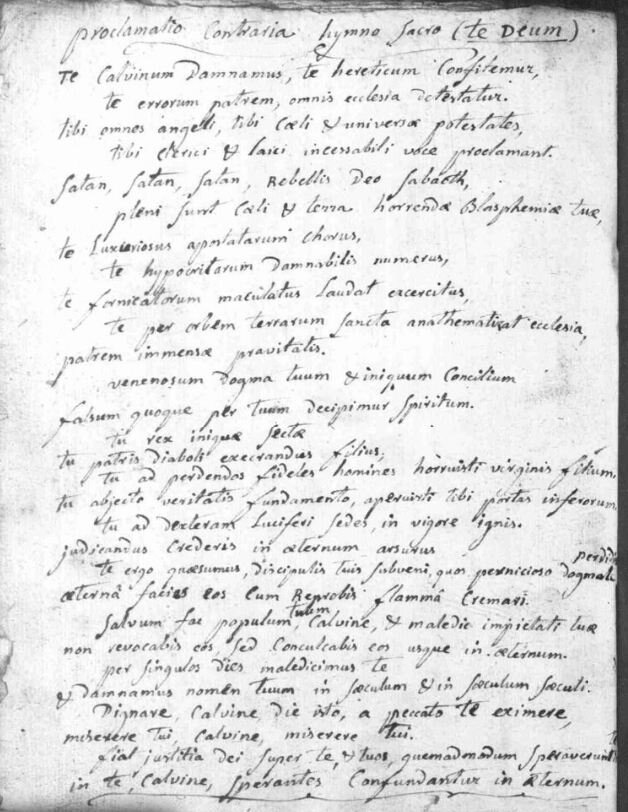 proclamatio Contraria hymno Sacro (te Deum).
Te Calvinum Damnamus, te hereticum Confitemur,
te errorum patrem, omnis ecclesia detestatur.
tibi omnes angeli, tibi Cæli & universæ potestates,
tibi Clerici & laici incessabili voce proclamant.
Satan, Satan, Satan, Rebellis Deo Sabaoth,
pleni sunt Cæli & terra horrendæ Blasphemiæ tuæ,
te Luxuriosus apostatarum Chorus,
te hypocritarum Damnabilis numerus,
te fornicatorum maculatus Laudat exercitus,
te per orbem terrarum Sancta anathematizat ecclesia,
patrem immensæ pravitatis.
venenosum Dogma tuum & iniquum Concilium
falsum quoque per tuum decipimur Spiritum.
tu rex iniquæ Sectæ
tu patris Diaboli execrandus filius,
tu ad perdendos fideles homines horruisti virginis filium.
tu abjecto veritatis fundamento, aperuisti tibi portas inferorum,
tu ad Dexteram Luciferi Sedes, in vigore ignis.
judicandus Crederis in æternum arsurus
te ergo quæsumus, Discipulis tuis Subveni, quos pernicioso Dogmate
æternâ facias eos Cum Reprobis flammâ Cremari.
Salvum fac populum tuum, Calvine, & maledic impietati tuæ
non revocabis eos, Sed Conculcabis eos usque in æternum.
per Singulos Dies maledicimus te
& Damnamus nomen tuum in Sæculum & in Sæculum Sæculi.
Dignare, Calvine, Die isto, a peccato te eximere,
miserere tui, Calvine, miserere tui.
fiat justitia Dei Super te, & tuos, quemadmodum Speraverunt
in te, Calvine, Sperantes Confundantur in æternum.